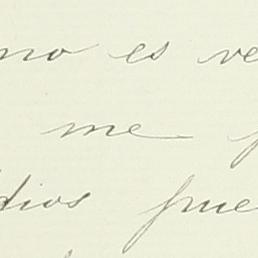 no es ve
me p
dios pue